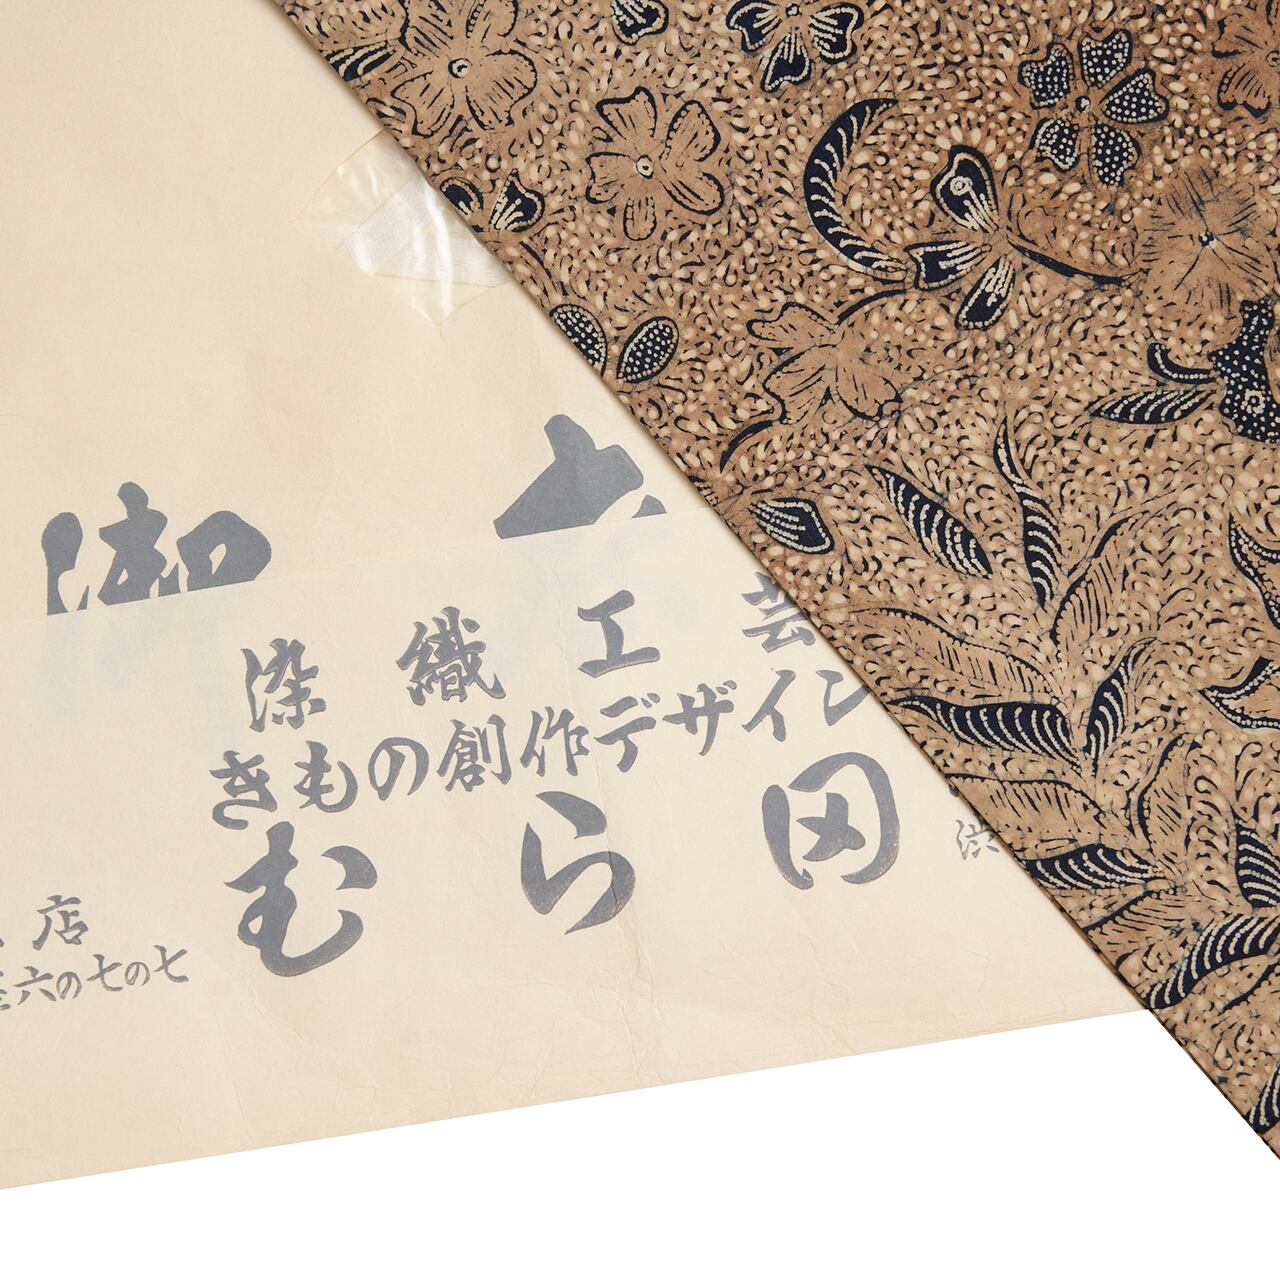 染織工芸
きもの創作デザイン
むら岡
渋
店
六の七の七